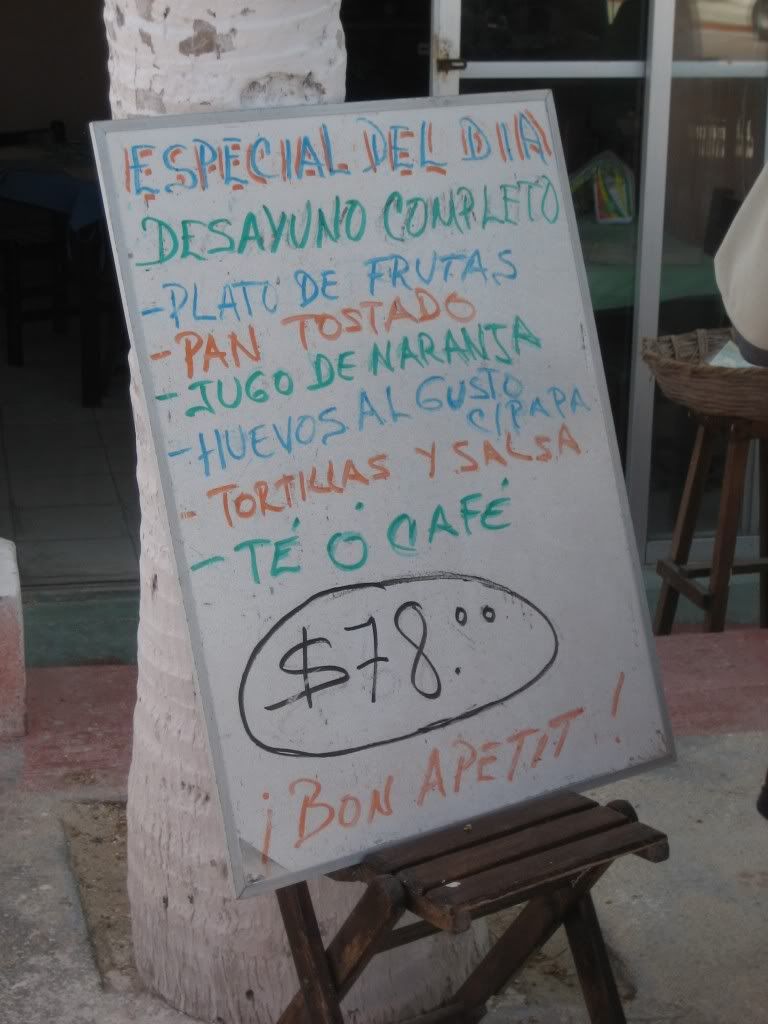 ESPECIAL DEL DIA
DESAYUNO COMPLETO
-PLATO DE FRUTAS
-PAN TOSTADO
-JUGO DE NARANJA
-HUEVOS AL GUSTO
C/PAPA
-TORTILLAS Y SALSA
-TÉ Ó CAFÉ
$78.00
¡BON APETIT!